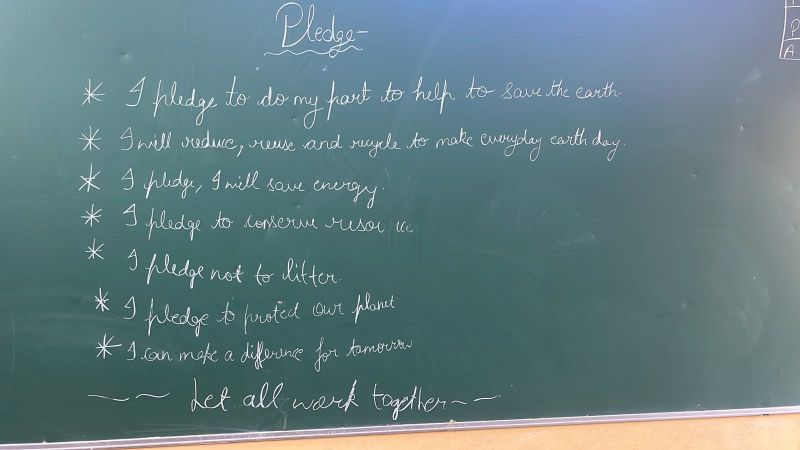 Pledge-
* I pledge to do my part to help to save the earth.
* I will reduce, reuse and recycle to make everyday earth day.
* I pledge, I will save energy.
* I pledge to conserve
* I pledge not to litter.
* I pledge to protect our planet
* I can make a difference for tomorrow
~~ Let all work together~~
P
A